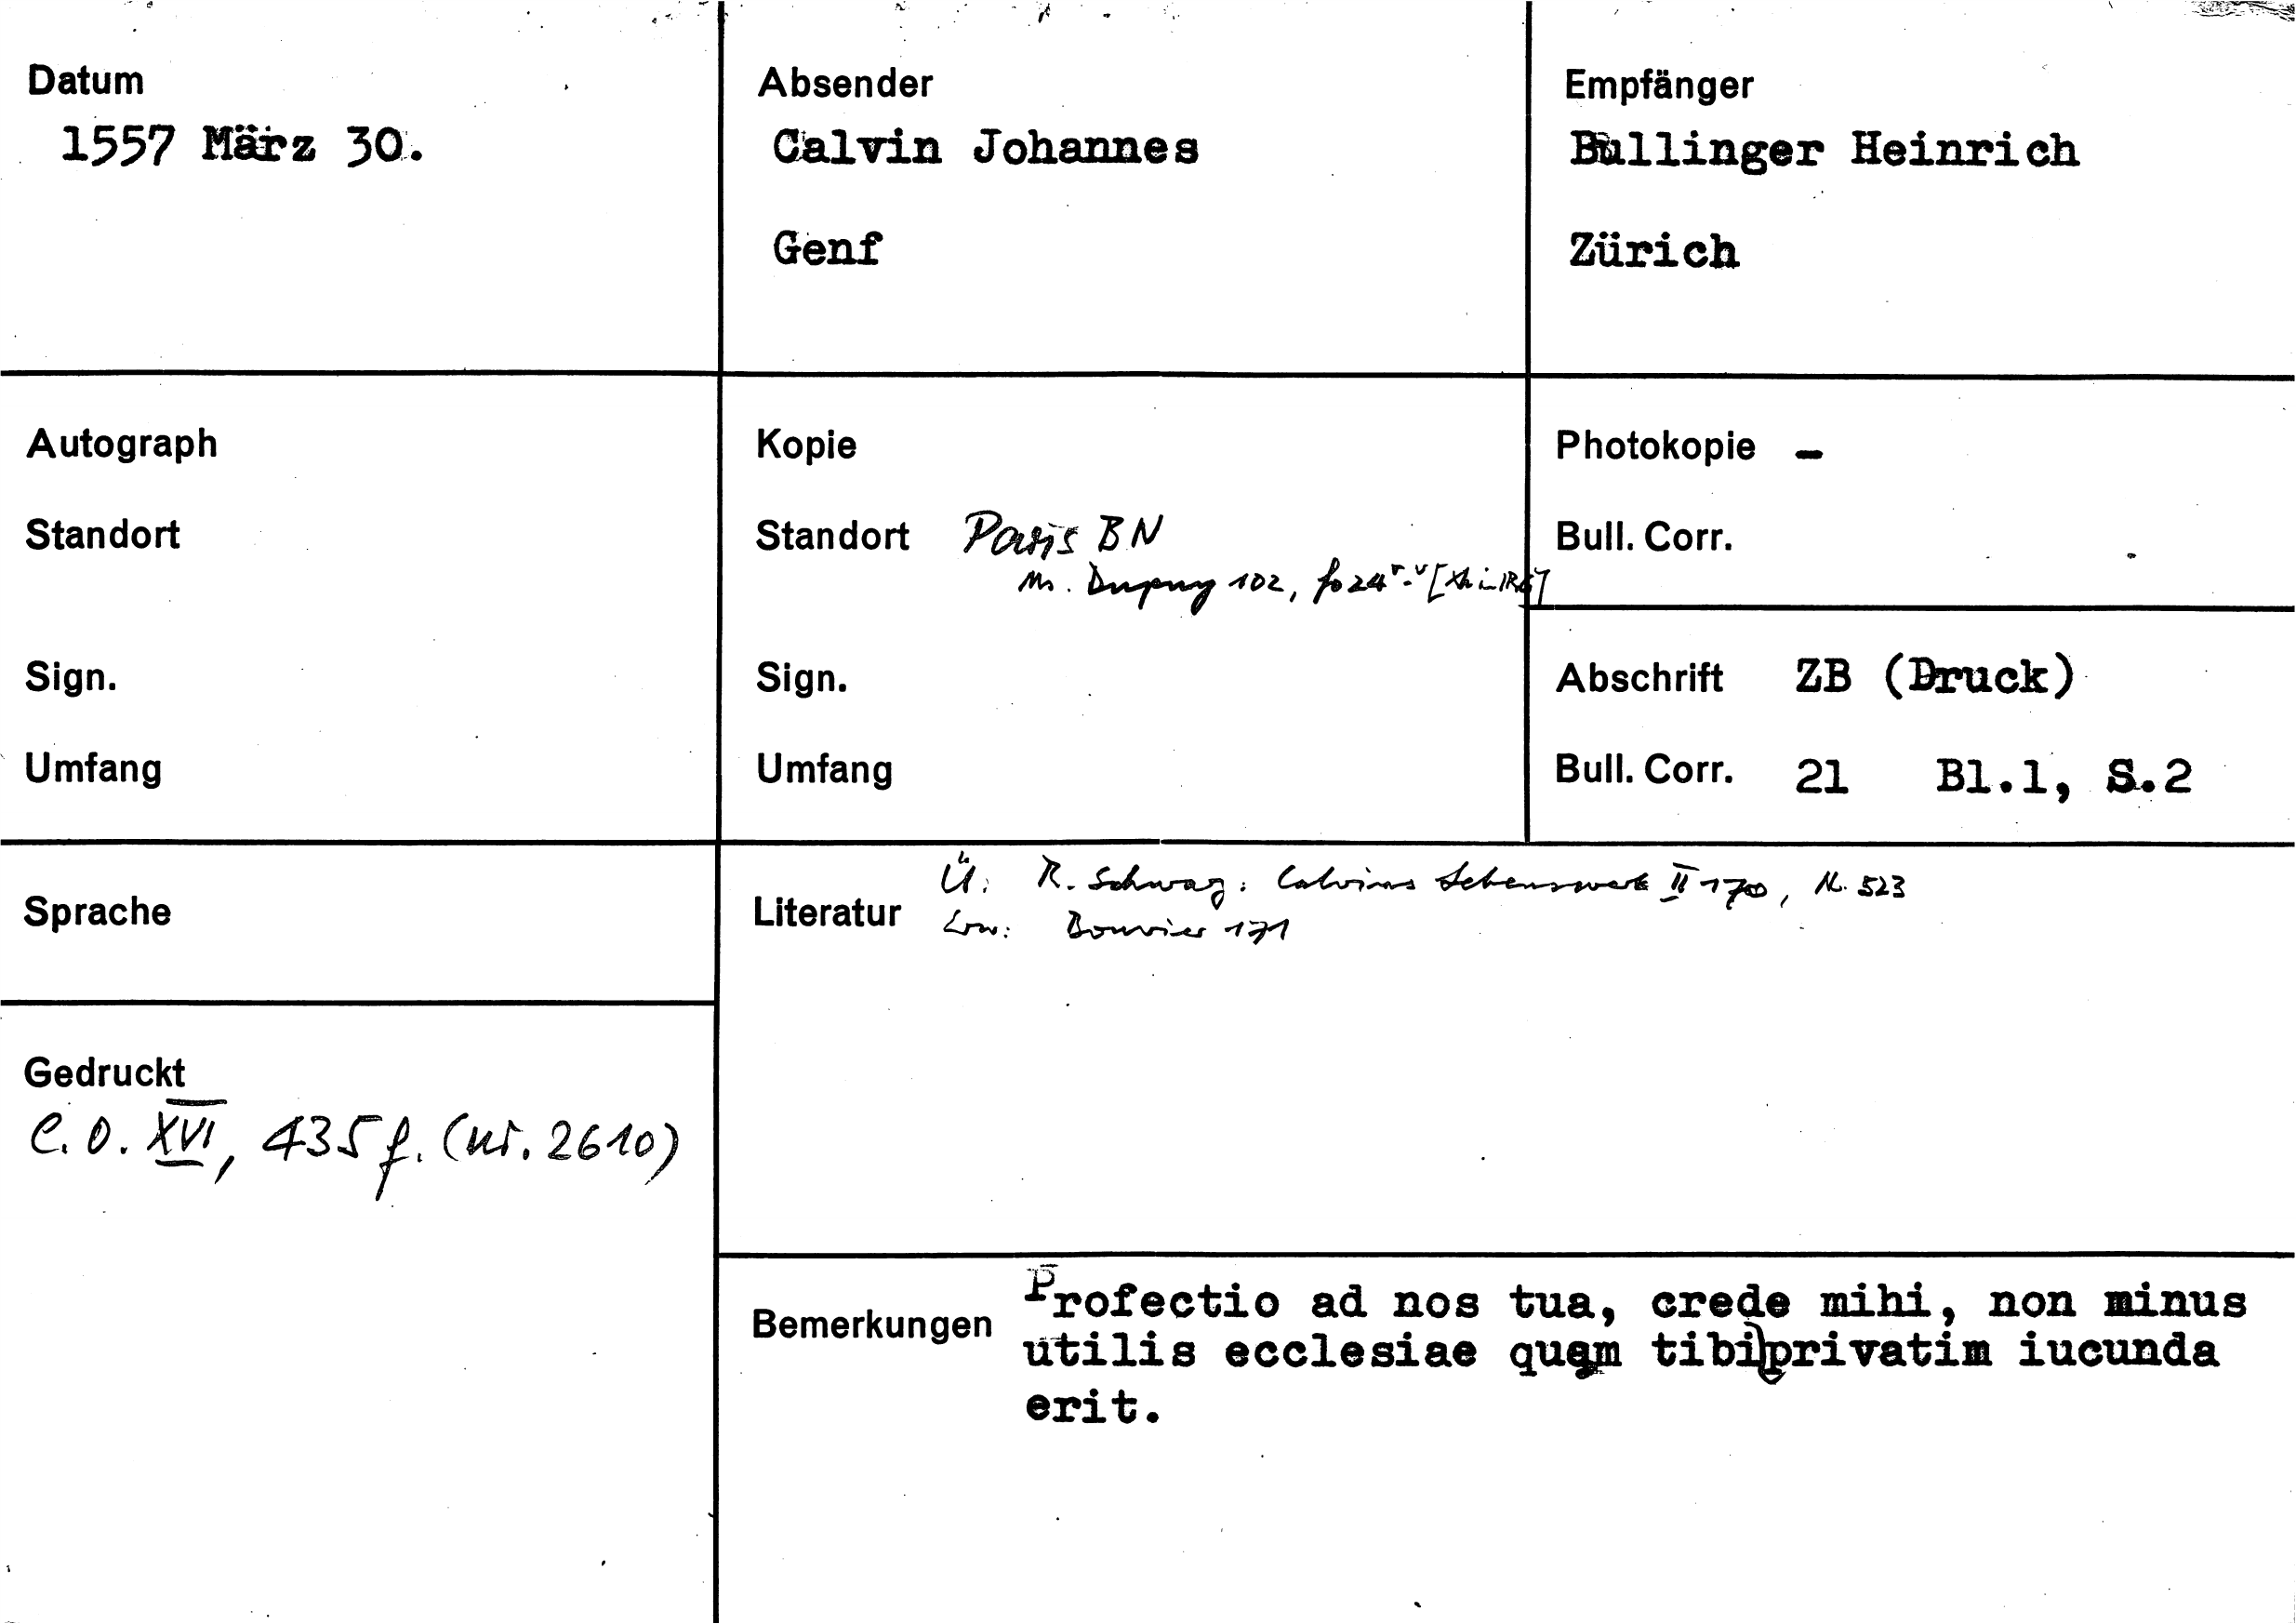 Datum
1557 März 30.
Absender
Calvin Johannes
Genf
Empfänger
Bullinger Heinrich
Zürich
Autograph
Standort
Sign.
Umfang
Kopie
Standort Paris BN
Ms. Dupuy 102, fo 24r-v
Sign.
Umfang
Photokopie -
Bull. Corr.
Abschrift ZB (Druck)
Bull. Corr. 21 Bl.1, S.2
Sprache
Gedruckt
C. O. XVI, 435 f. (nr. 2610)
Ü: R. Schwarz: Calvins Lebenswerk II 1700, N. 523
Literatur Bouvier 171
Bemerkungen
Profectio ad nos tua, crede mihi, non minus
utilis ecclesiae quam tibi privatim iucunda
erit.